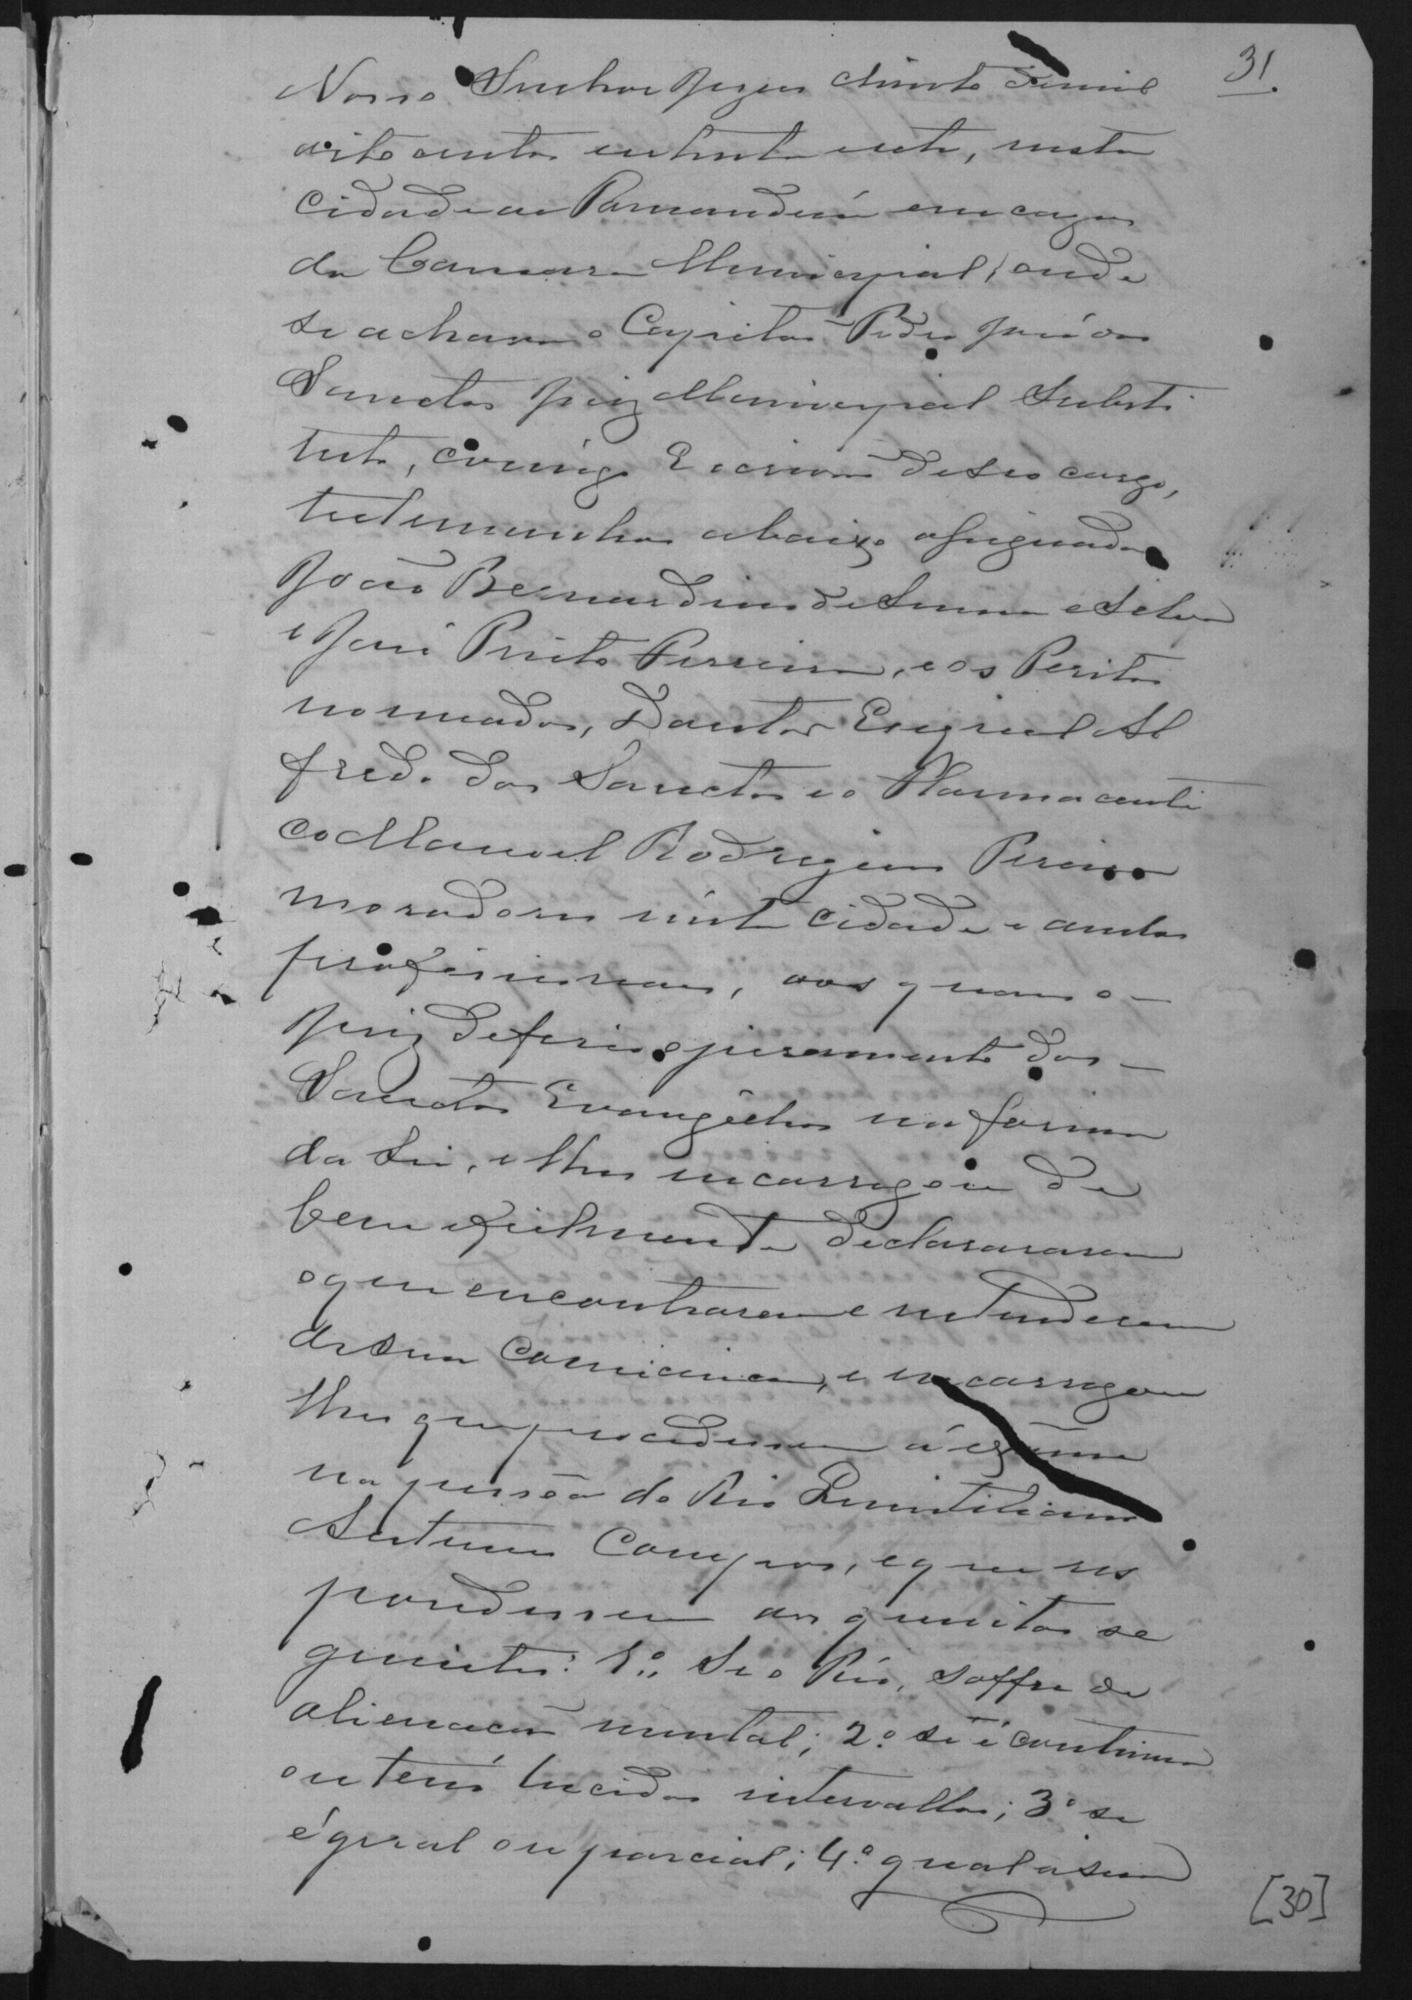 31.
Nosso Senhor Jezus Christo de mil
oito centos e oitenta e sete, nesta
Cidade de Parnandeú em caza
da Camara Municipal, onde
se achava o Capitão Pedro José dos
Sanctos Juiz Municipal Substi
tuto, comigo Escrivão de seo cargo,
testemunhas abaixo assignadas
João Bernardino de Senna e Silva
e José Pinto Ferreira, e os Peritos
nomeados, Doutor Ezequiel Al
fredo dos Sanctos e o Pharmaceuti
co Manoel Rodrigues Pereira
moradores nesta Cidade e ambos
profissionaes, aos quaes o
Juiz deferio o juramento dos
Sanctos Evangelhos na forma
da Lei, e lhes encarregou de
bem e fielmente declararem
o que encontrarem e entenderem
de sua Consciencia, e encarregou
lhes que procedessem a exame
na pessôa do Réo Quintiliano
Antunes Campos, e que res
pondessem aos quesitos se
guintes: 1.º Se o Réo, soffre de
alienação mental; 2.º se é continua
ou tem lucidos intervallos; 3.º se
é geral ou parcial; 4.º qual a sua
[30]